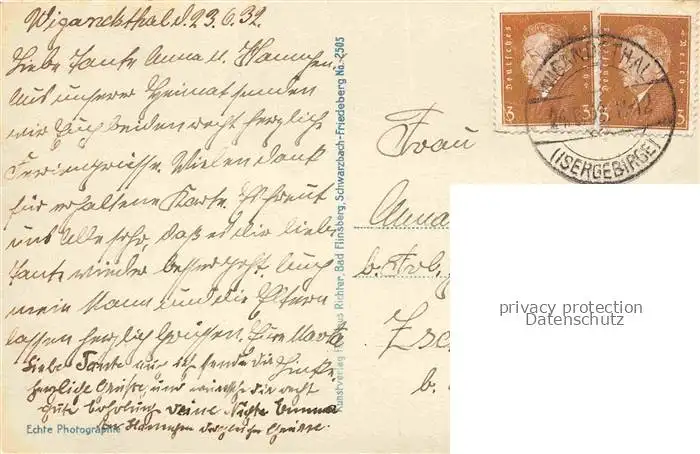 Wiganckthal d. 23.6.32.
Liebe Tante Anna u. Hannchen.
Aus unserer Heimat senden
wir Euch beiden recht herzlich
Feriengrüsse. Vielen dank
für erhaltene Karte. Es freut
uns Alle sehr, daß es dir liebe
Tante wieder besser geht. Auch
mein Mann und die Eltern
lassen herzlich Grüssen. Eure Marta
Liebe Tante auch ich sende die
herzliche Grüsse, und wünsche dir recht
gute Erholung deine Nichte Emma
Hannchen Grüsse.
Echte Photographie
Kunstverlag Richter, Bad Flinsberg, Schwarzbach-Friedeberg No. 2505
Deutsches Reich
3 3
Deutsches Reich
3 3
WIGANDSTHAL
(ISERGEBIRGE)
Frau
Anna
b.
Zsc
b.
privacy protection
Datenschutz